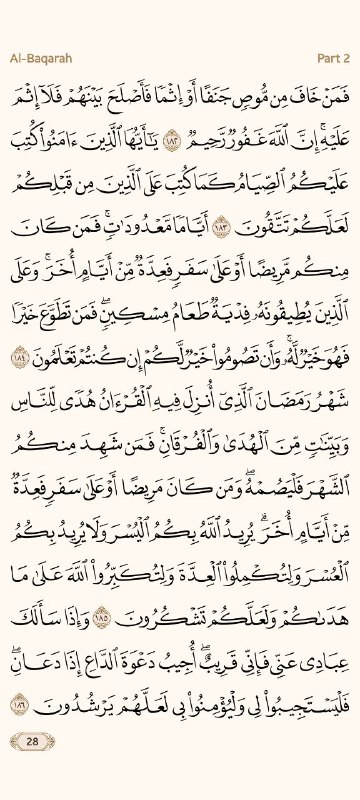 Al-Baqarah
Part 2
فَمَنْ خَافَ مِن مُّوصٍ جَنَفًا أَوْ إِثْمًا فَأَصْلَحَ بَيْنَهُمْ فَلَآ إِثْمَ
عَلَيْهِ ۚ إِنَّ ٱللَّهَ غَفُورٌ رَّحِيمٌ ١٨٢ يَـٰٓأَيُّهَا ٱلَّذِينَ ءَامَنُوا۟ كُتِبَ
عَلَيْكُمُ ٱلصِّيَامُ كَمَا كُتِبَ عَلَى ٱلَّذِينَ مِن قَبْلِكُمْ
لَعَلَّكُمْ تَتَّقُونَ ١٨٣ أَيَّامًا مَّعْدُودَٰتٍ ۚ فَمَن كَانَ
مِنكُم مَّرِيضًا أَوْ عَلَىٰ سَفَرٍ فَعِدَّةٌ مِّنْ أَيَّامٍ أُخَرَ ۚ وَعَلَى
ٱلَّذِينَ يُطِيقُونَهُۥ فِدْيَةٌ طَعَامُ مِسْكِينٍ ۖ فَمَن تَطَوَّعَ خَيْرًا
فَهُوَ خَيْرٌ لَّهُۥ ۚ وَأَن تَصُومُوا۟ خَيْرٌ لَّكُمْ ۖ إِن كُنتُمْ تَعْلَمُونَ ١٨٤
شَهْرُ رَمَضَانَ ٱلَّذِىٓ أُنزِلَ فِيهِ ٱلْقُرْءَانُ هُدًى لِّلنَّاسِ
وَبَيِّنَـٰتٍ مِّنَ ٱلْهُدَىٰ وَٱلْفُرْقَانِ ۚ فَمَن شَهِدَ مِنكُمُ
ٱلشَّهْرَ فَلْيَصُمْهُ ۖ وَمَن كَانَ مَرِيضًا أَوْ عَلَىٰ سَفَرٍ فَعِدَّةٌ
مِّنْ أَيَّامٍ أُخَرَ ۗ يُرِيدُ ٱللَّهُ بِكُمُ ٱلْيُسْرَ وَلَا يُرِيدُ بِكُمُ
ٱلْعُسْرَ وَلِتُكْمِلُوا۟ ٱلْعِدَّةَ وَلِتُكَبِّرُوا۟ ٱللَّهَ عَلَىٰ مَا
هَدَىٰكُمْ وَلَعَلَّكُمْ تَشْكُرُونَ ١٨٥ وَإِذَا سَأَلَكَ
عِبَادِى عَنِّى فَإِنِّى قَرِيبٌ ۖ أُجِيبُ دَعْوَةَ ٱلدَّاعِ إِذَا دَعَانِ ۖ
فَلْيَسْتَجِيبُوا۟ لِى وَلْيُؤْمِنُوا۟ بِى لَعَلَّهُمْ يَرْشُدُونَ ١٨٦
28